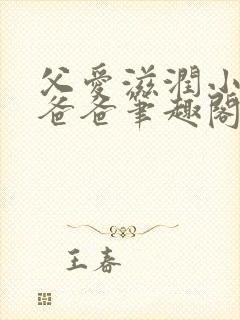 父爱滋润小
爸爸笔趣阁
王春